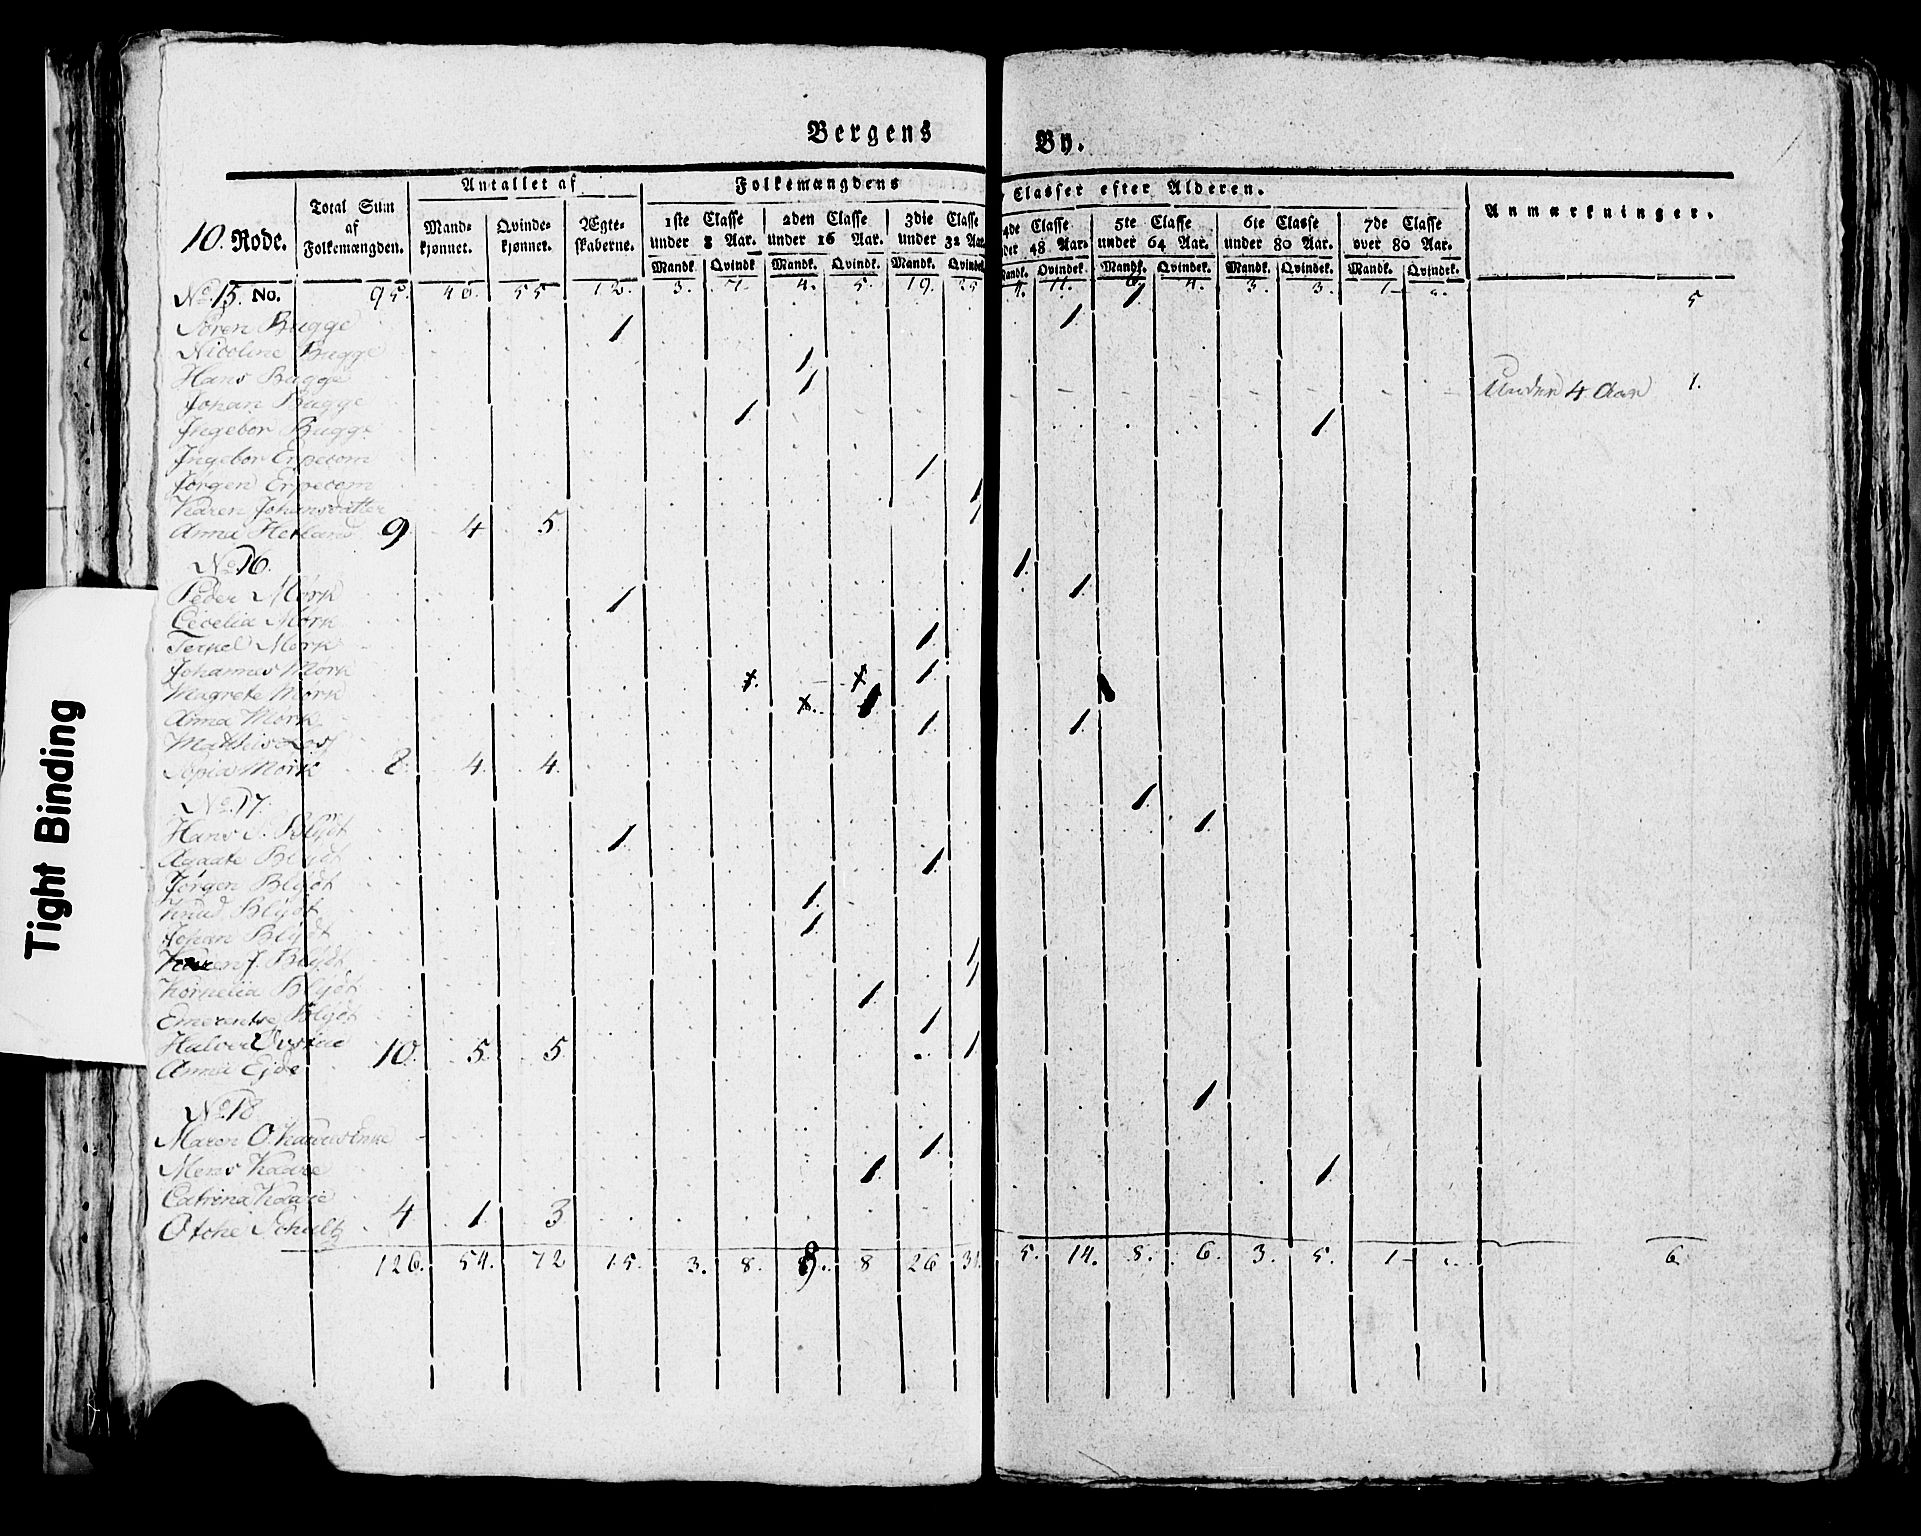 Bergens By.
Antallet af Folkemængdens Classer efter Alderen.
10. Rode. Total Sum af Folkemængden. Mand-kjønnet. Qvinde-kjønnet. Ægte-skaberne. 1ste Classe under 8 Aar. 2den Classe under 16 Aar. 3die Classe under 32 Aar. 4de Classe 48 Aar. 5te Classe under 64 Aar. 6te Classe under 80 Aar. 7de Classe over 80 Aar. Anmærkninger.
Mandk. Qvindk. Mandk. Qvindk. Mandk. Qvindek. Mandk. Qvindek. Mandk. Qvindek. Mandk. Qvindek. Mandk. Qvindek.
No. 15. No. 95. 40. 55 12. 3. 7. 4. 5. 19. 25 4. 11. 4. 3. 3. 1 5
Søren Bugge 1
Nicoline Bugge 1 1
Hans Bugge 1
Johan Bugge 1 Under 4 Aar 1.
Ingebor Bugge 1 1
Ingebor Erpecom
Jørgen Erpecom 1
Karen Johansdatter 1
Anna Hetland 9 4 5 1
No. 16.
Peder Mørk 1 1
Cecelia Mørk 1
Terkel Mørk 1
Johannes Mørk 1
Magrete Mørk
Anna Mørk 1 1
Matthis
Mørk 8. 4. 4.
No. 17. 1
Hans Blÿdt 1 1
Agaate Blÿdt
Jørgen Blÿdt 1
Knud Blÿdt 1
Johan Blÿdt 1
J. Blÿdt 1
Kornelia Blÿdt 1
Emerentse Blÿdt 1
Halvor 10. 5. 5 1
Anna Eÿde 1
No. 18 1
Maren O.
Mens Kaare 1
Catrina Kaarie 1 1
Schultz 4 1. 3
126. 54. 72 15. 3. 8. 8 26 31. 5. 14. 8. 6. 3. 5. 1 6
Tight Binding